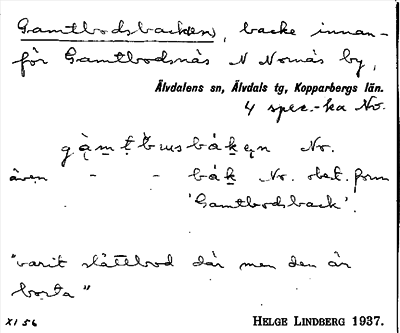 Gamtbodsbacken, backe innan-
för Gamtbodsnäs N Nornäs by,
Älvdalens sn, Älvdals tg, Kopparbergs län.
4 spec.-ka No.
No.
även - - båk No. obet. form
'Gamtbodsback'.
"varit slåttbod där men den är
borta"
XI 56 HELGE LINDBERG 1937.